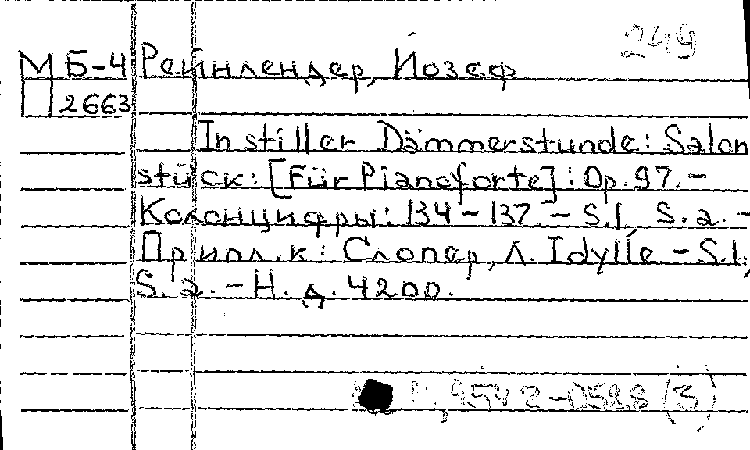 249
МБ-4 Рейнлендер, Йозеф
2663
In stiller Dämmerstunde: Salon
stück: [Für Pianoforte]: Op. 97. –
Колонцифры: 134-137. – S.l, S.a. –
Припл.к: Слопер, Л. Idylle – S.l,
S.a. – Н.д. 4200.